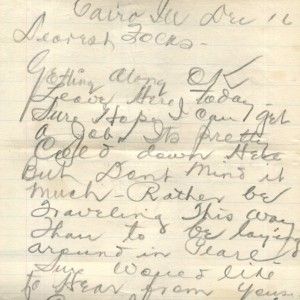 Cairo Ill Dec 16
Dearest Folks -
Getting Along OK
Leave Here Today -
Sure Hope I Can get
a Job. Its pretty
Cold down Here
But Dont Mind it
Much - Rather be
Traveling This Way
Than to be laying
around in
Sure Would like
to Hear from yous.